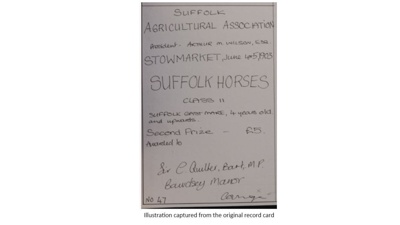 SUFFOLK
AGRICULTURAL ASSOCIATION
President - ARTHUR M. WILSON, ESQ
STOWMARKET, JUNE 4&5, 1903
SUFFOLK HORSES
CLASS 11
SUFFOLK MARE, 4 years old
and upwards.
Second Prize - £5.
Awarded to
Sir C. Quilter, Bart, M.P.
Bawdsey Manor
NO. 47
Illustration captured from the original record card